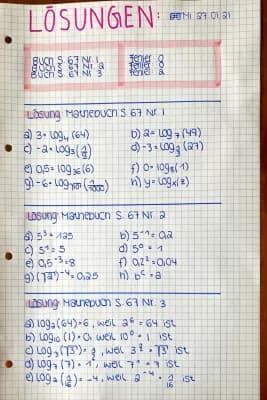 LÖSUNGEN: Mi 27.01.21
Buch S. 67 Nr. 1 Fehler: 0
Buch S. 67 Nr. 2 Fehler: 0
Buch S. 67 Nr. 3 Fehler: 2
Lösung Mathebuch S. 67 Nr. 1
a) 3 = log₄(64) b) 2 = log₇(49)
c) -2 = log₃(1/9) d) -3 = (27)
e) 0,5 = log₃₆(6) f) 0 = log₈(1)
g) -6 = (1/1000) h) y = logₓ(z)
Lösung Mathebuch S. 67 Nr. 2
a) 5³ = 125 b) 5⁻¹ = 0,2
c) 5¹ = 5 d) 5⁰ = 1
e) 0,5⁻³ = 8 f) 0,2² = 0,04
g) (√2)⁻⁴ = 0,25 h) bᶜ = a
Lösung Mathebuch S. 67 Nr. 3
a) log₂(64) = 6, weil 2⁶ = 64 ist
b) log₁₀(1) = 0, weil 10⁰ = 1 ist
c) log₃(√3) = 1/2, weil = √3 ist
d) log₇(7) = 1, weil 7¹ = 7 ist
e) log₂(1/16) = -4, weil 2⁻⁴ = 1/16 ist